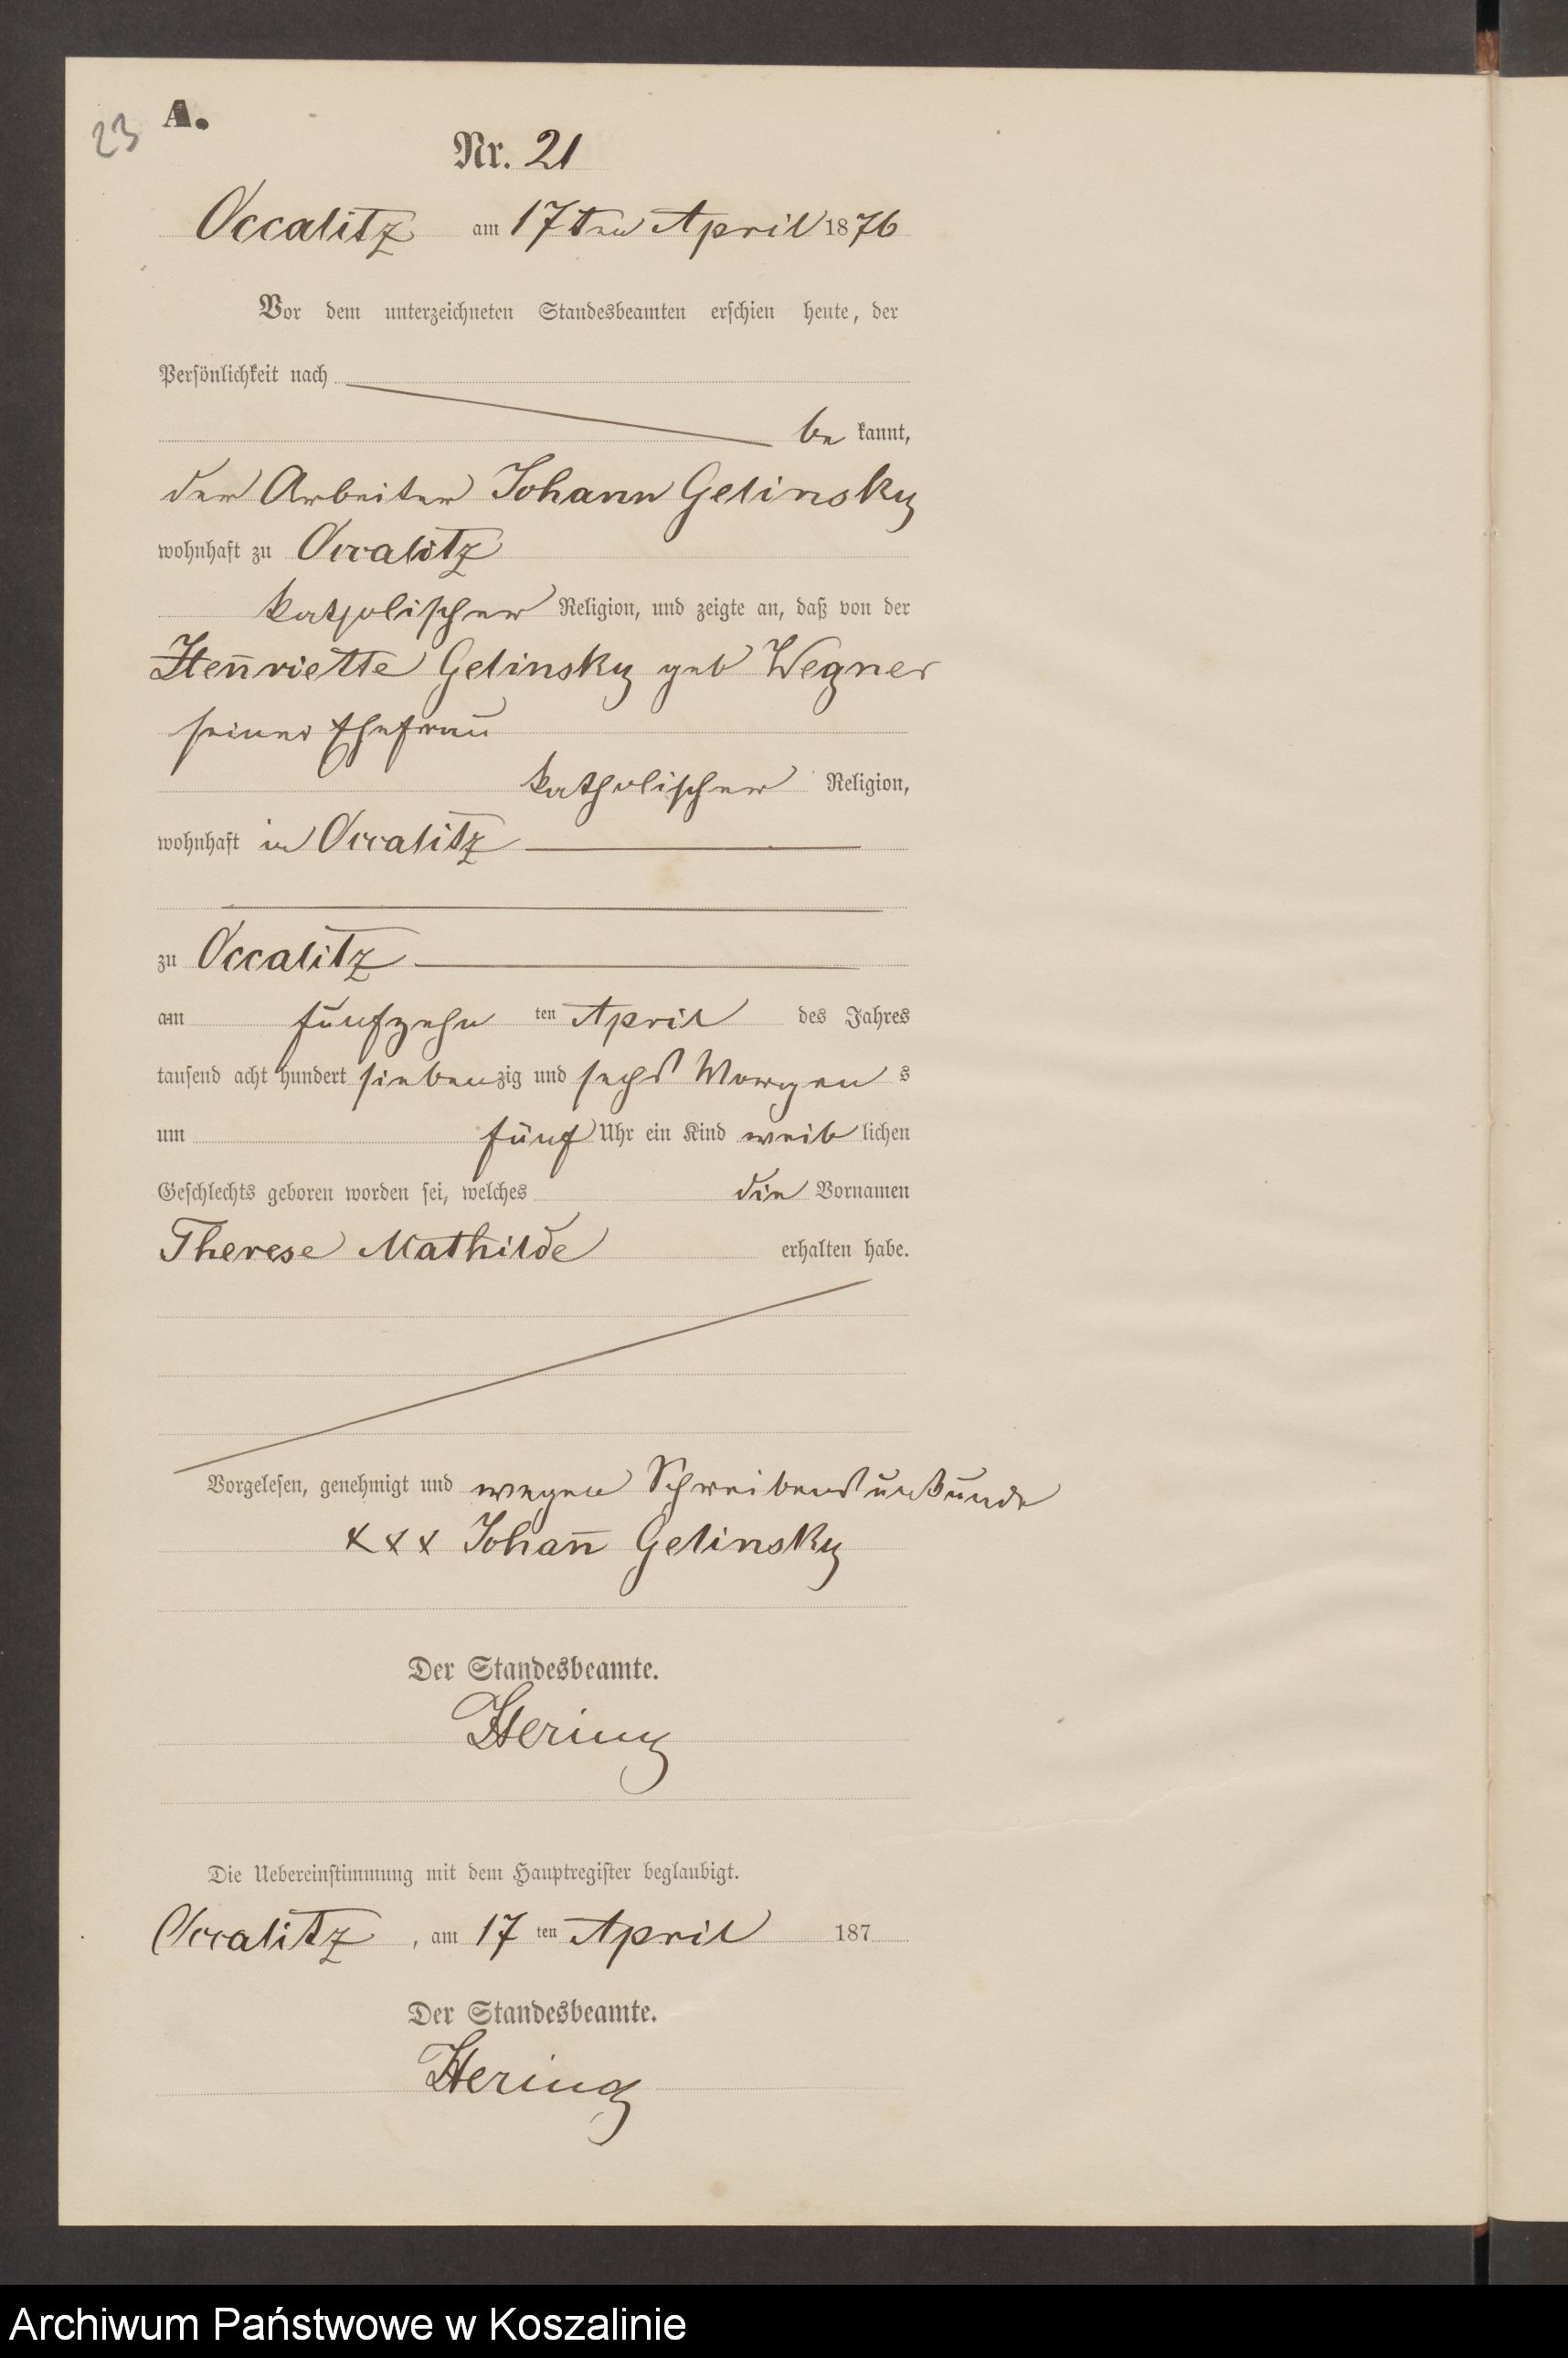 23
A.
Nr. 21
Occalitz am 17ten April 1876
Vor dem unterzeichneten Standesbeamten erschien heute, der
Persönlichkeit nach
be kannt,
der Arbeiter Johann Gelinsky
wohnhaft zu Occalitz
katholischer Religion, und zeigte an, daß von der
Hen̄riette Gelinsky geb Wegner
seiner Ehefrau
katholischer Religion,
wohnhaft in Occalitz
zu Occalitz
am fünfzehn ten April des Jahres
tausend acht hundert siebenzig und sechs Morgen s
um fünf Uhr ein Kind weib lichen
Geschlechts geboren worden sei, welches die Vornamen
Therese Mathilde erhalten habe.
Vorgelesen, genehmigt und wegen Schreibensunkunde
x x x Johan̄ Gelinsky
Der Standesbeamte.
Hering
Die Uebereinstimmung mit dem Hauptregister beglaubigt.
Occalitz, am 17 ten April 187
Der Standesbeamte.
Hering
Archiwum Państwowe w Koszalinie